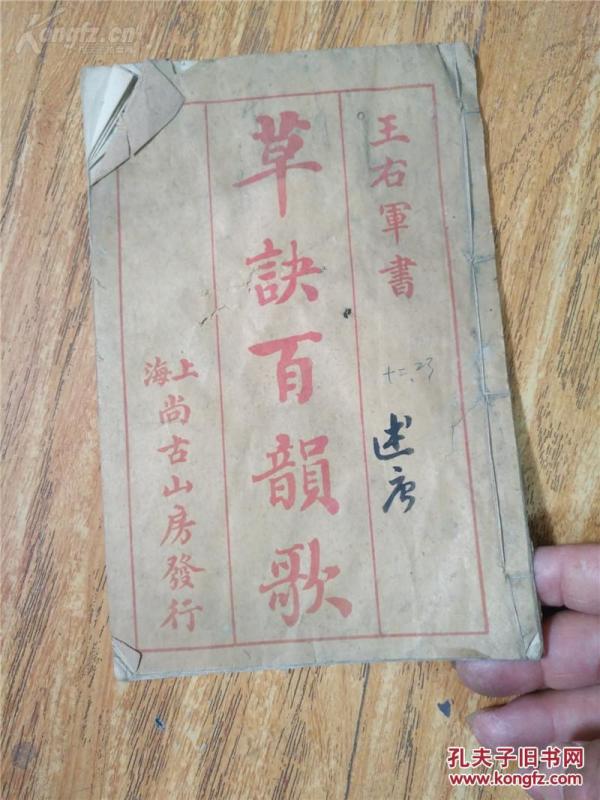 王右軍書
草訣百韻歌
上海
尚古山房發行
十二.23
Kongfz.com
孔夫子旧书网
www.kongfz.com